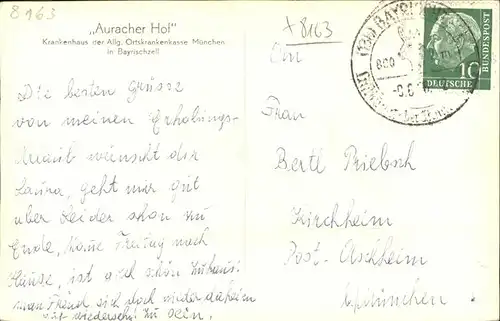 8163
„Auracher Hof"
Krankenhaus der Allg. Ortskrankenkasse München
in Bayrischzell
Die besten Grüsse
von meinen Erholungs-
wünscht der
Laura, geht mir gut
über leider schon zu
Ende, Freitag nach
Hause, ist auch schön zuhaus!
man Freud sich doch wieder daheim
zu sein.
+8163
An
Frau
Bertl Priebsch
Kirchheim
Post-Aschheim
b/München
DEUTSCHE
BUNDESPOST
10